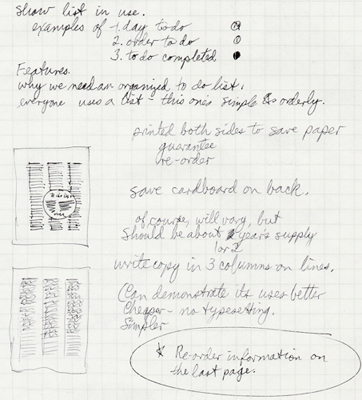 show list in use.
examples of 1. day to do
2. order to do
3. to do completed
Features
why we need an organized to do list,
everyone uses a list - this one's simple & orderly.
printed both sides to save paper
guarantee
re-order
save cardboard on back.
of course, will vary, but
should be about years supply
1 or 2
write copy in 3 columns on lines.
Can demonstrate its uses better
Cheaper - no typesetting.
Simpler
* Re-order information on
the last page.